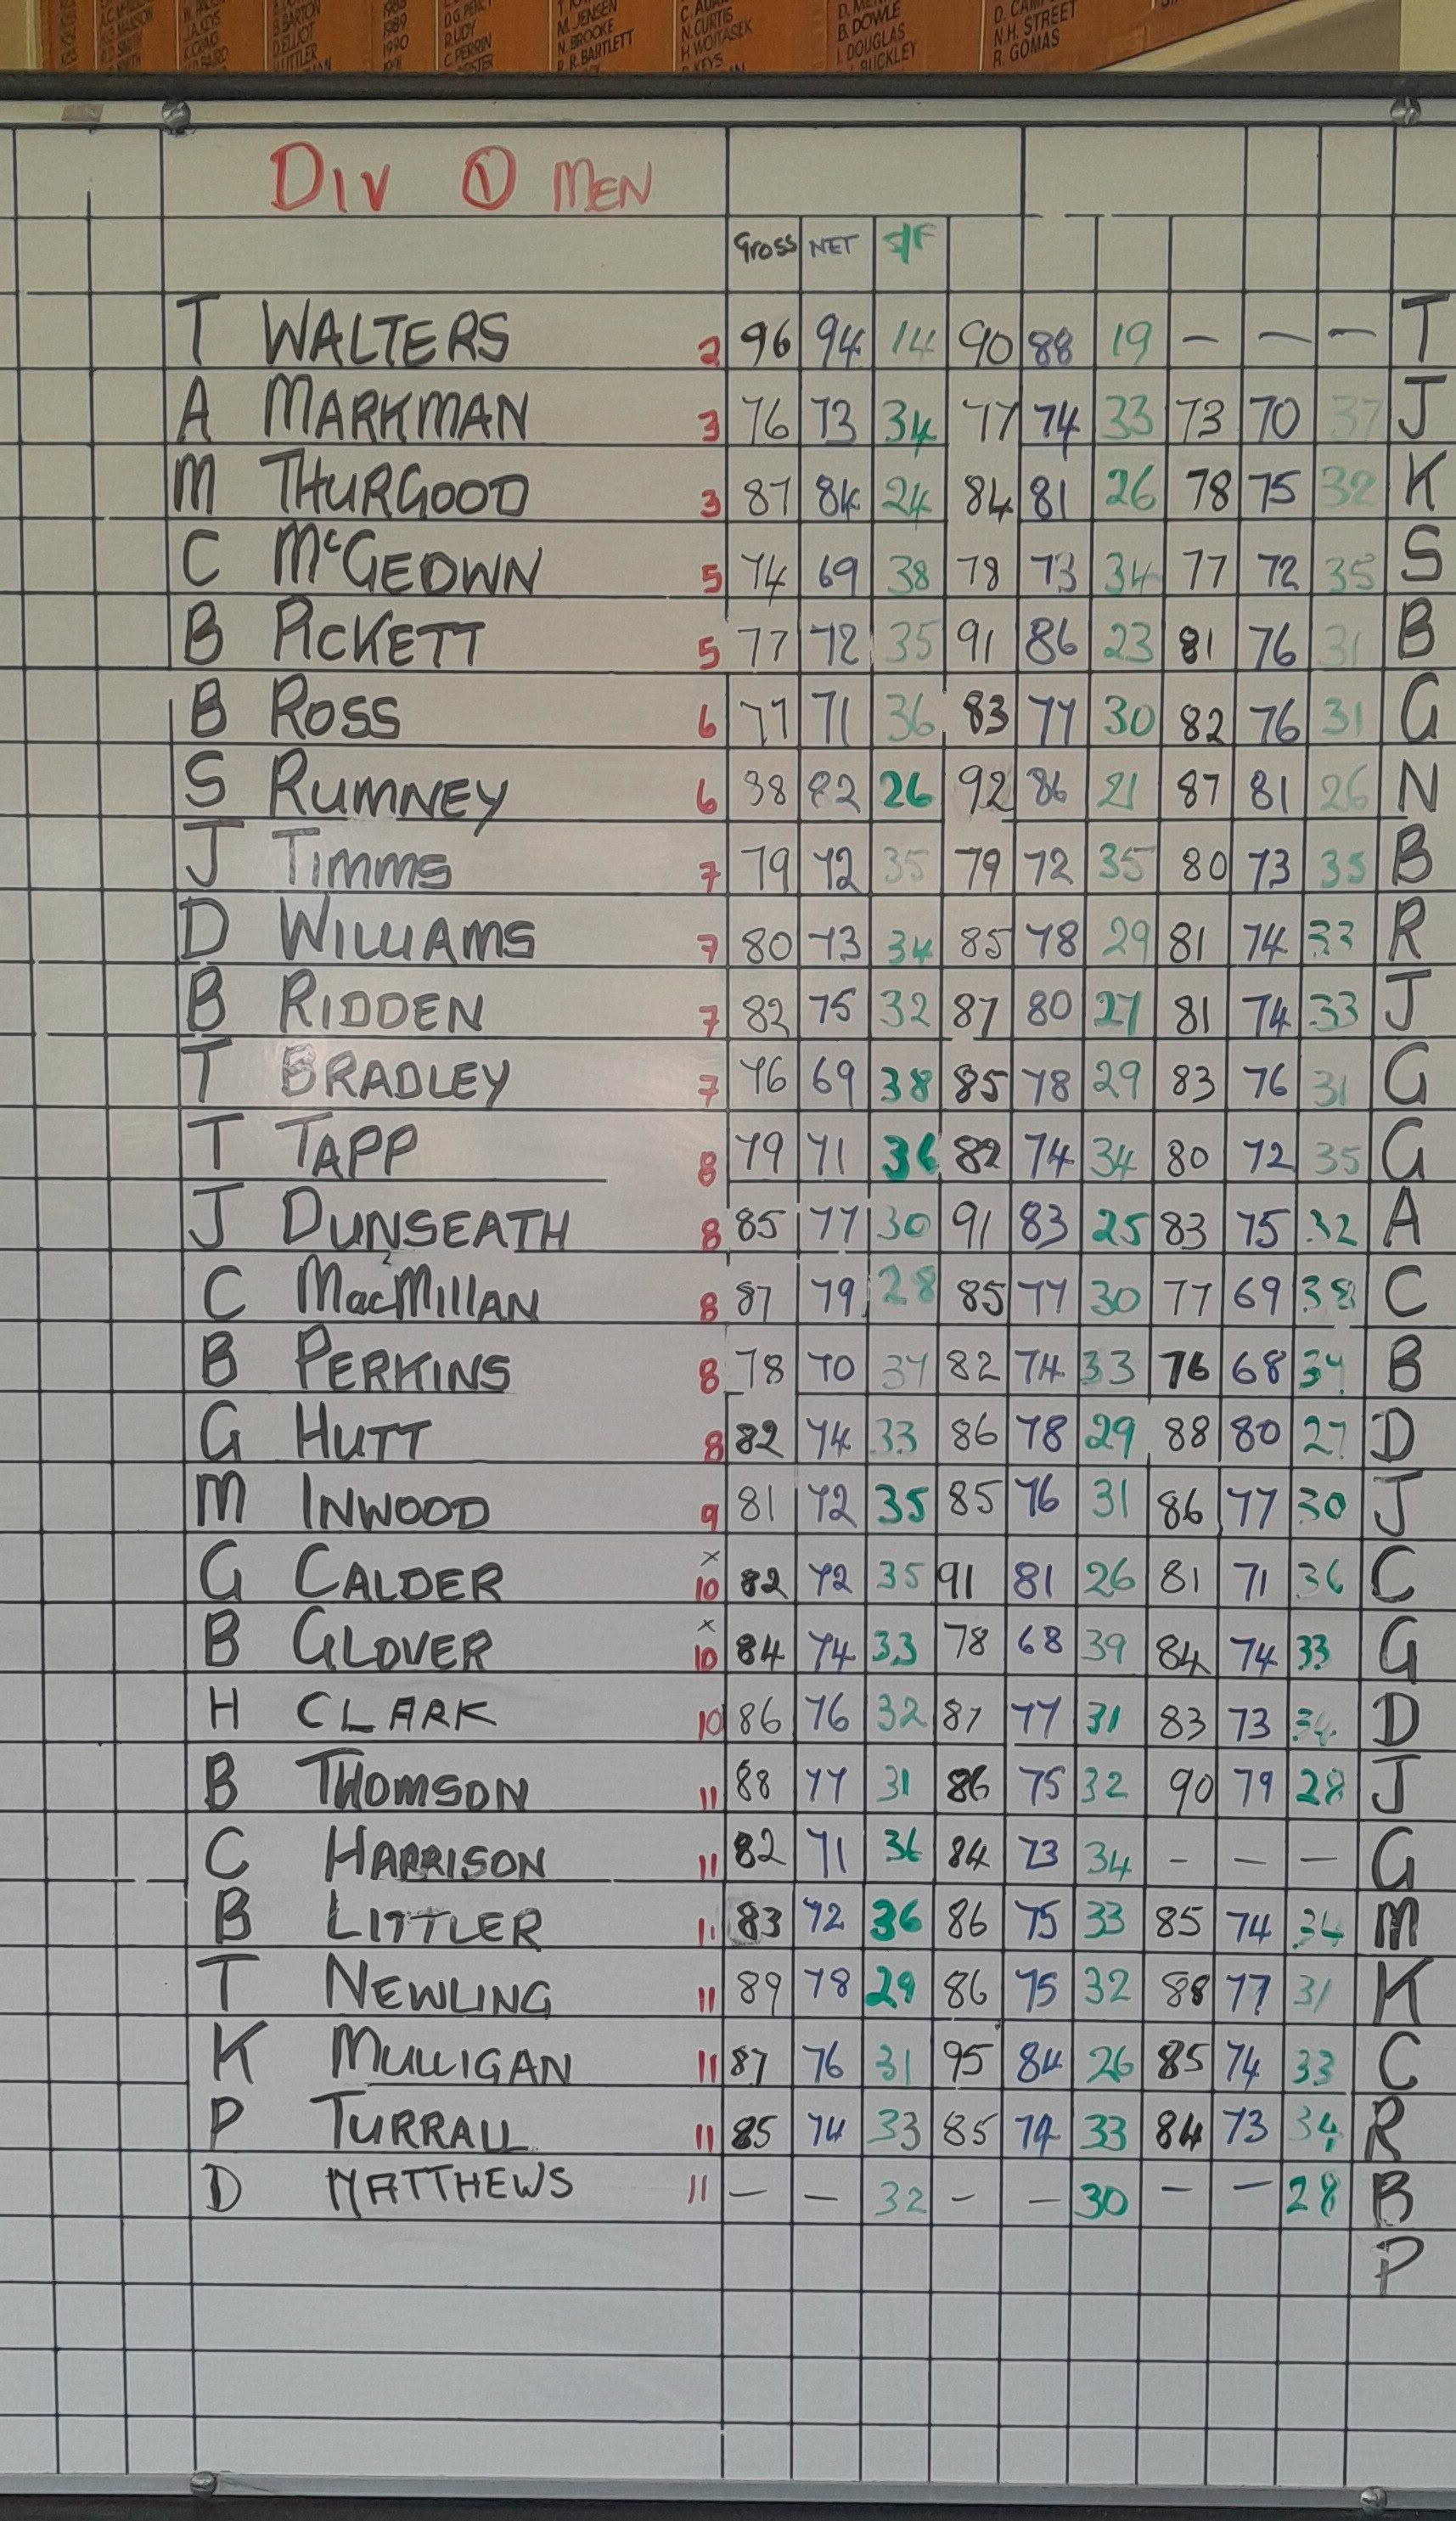 1989
1990
D.G. PERCY
P. UDY
C. PERRIN
M. JENSEN
N. BROOKE
R. R. BARTLETT
N. CURTIS
H. WOJTASEK
KEYS
B. DOWLE
I. DOUGLAS
BUCKLEY
N.H. STREET
R. GOMAS
DIV ① MEN
Gross NET S/F
T WALTERS 2 96 94 14 90 88 19 – – – T
A MARKMAN 3 76 73 34 77 74 33 73 70 37 J
M THURGOOD 3 87 84 24 84 81 26 78 75 32 K
C McGEOWN 5 74 69 38 78 73 34 77 72 35 S
B PICKETT 5 77 72 35 91 86 23 81 76 31 B
B ROSS 6 77 71 36 83 77 30 82 76 31 G
S RUMNEY 6 88 82 26 92 86 21 87 81 26 N
J TIMMS 7 79 72 35 79 72 35 80 73 35 B
D WILLIAMS 7 80 73 34 85 78 29 81 74 33 R
B RIDDEN 7 82 75 32 87 80 27 81 74 33 J
T BRADLEY 7 76 69 38 85 78 29 83 76 31 G
T TAPP 8 79 71 36 82 74 34 80 72 35 G
J DUNSEATH 8 85 77 30 91 83 25 83 75 32 A
C MacMillAN 8 87 79 28 85 77 30 77 69 38 C
B PERKINS 8 78 70 37 82 74 33 76 68 B
G HUTT 8 82 74 33 86 78 29 88 80 27 D
M INWOOD 9 81 72 35 85 76 31 86 77 30 J
G CALDER x 10 82 72 35 91 81 26 81 71 36 C
B GLOVER x 10 84 74 33 78 68 39 84 74 33 G
H CLARK 10 86 76 32 87 77 31 83 73 34 D
B THOMSON 11 88 77 31 86 75 32 90 79 28 J
C HARRISON 11 82 71 36 84 73 34 – – – G
B LITTLER 11 83 72 36 86 75 33 85 74 34 M
T NEWLING 11 89 78 29 86 75 32 88 77 31 K
K MULLIGAN 11 87 76 31 95 84 26 85 74 33 C
P TURRALL 11 85 74 33 85 74 33 84 73 34 R
D MATTHEWS 11 – – 32 – – 30 – – 28 B
P